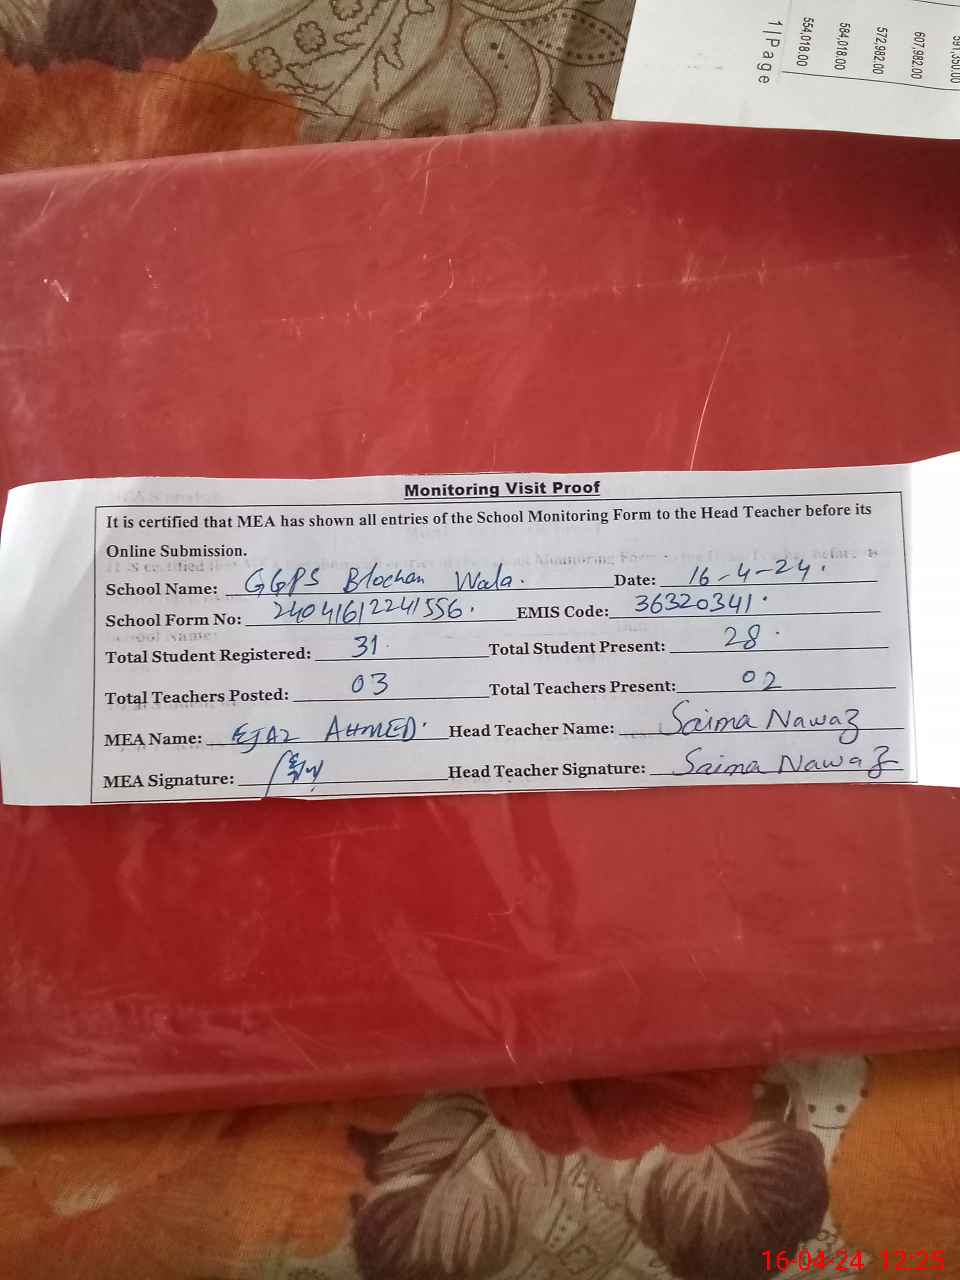 591,350.00
607,982.00
572,982.00
584,018.00
554,018.00
1 | Page
Monitoring Visit Proof
It is certified that MEA has shown all entries of the School Monitoring Form to the Head Teacher before its
Online Submission.
School Name: GGPS Blochan Wala. Date: 16-4-24.
School Form No: 24041612241556. EMIS Code: 36320341.
Total Student Registered: 31. Total Student Present: 28.
Total Teachers Posted: 03 Total Teachers Present: 02
MEA Name: EJAZ AHMED. Head Teacher Name: Saima Nawaz
MEA Signature: Head Teacher Signature: Saima Nawaz
16-04-24 12:25